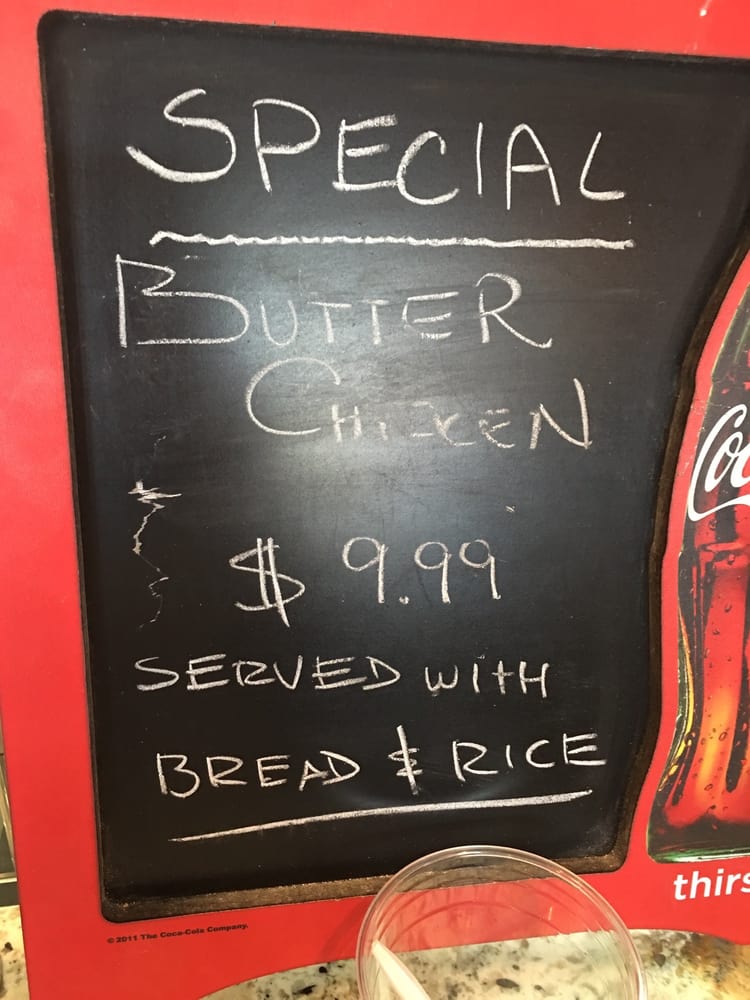 SPECIAL
BUTTER
CHICKEN
$ 9.99
SERVED WITH
BREAD & RICE
© 2011 The Coca-Cola Company.